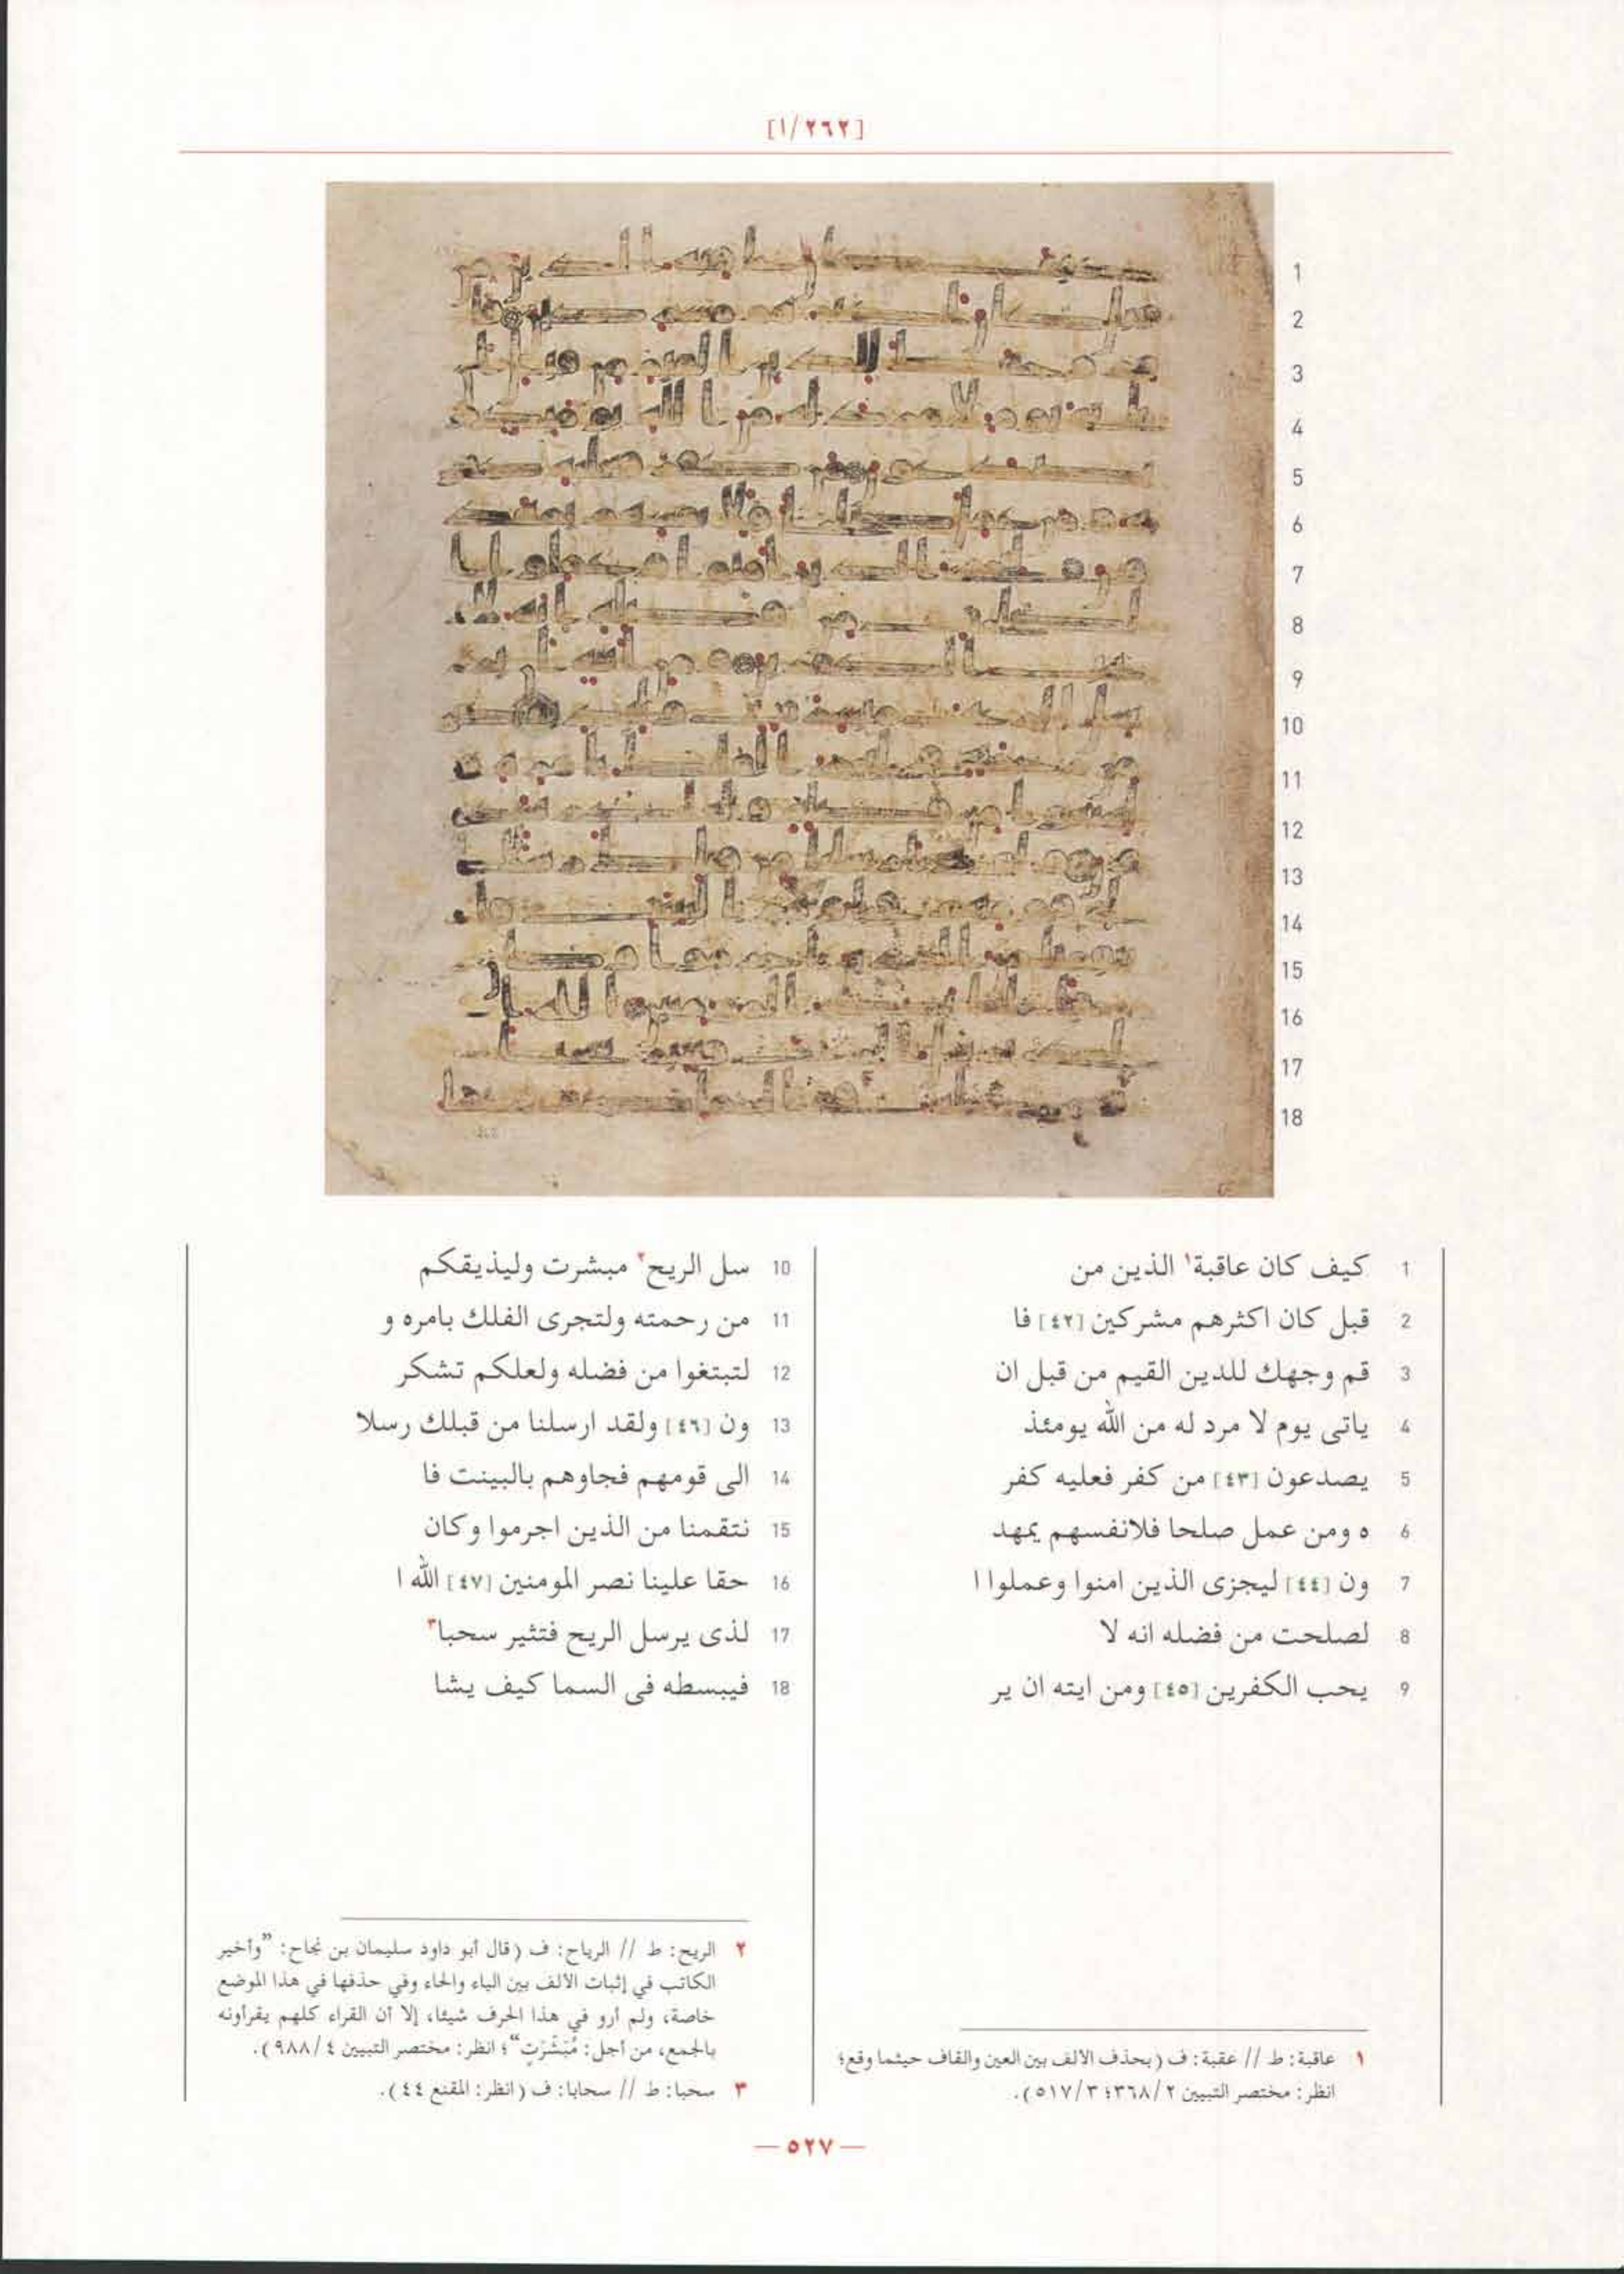 [١/٢٦٢]
1 كيف كان عاقبة١ الذين من
2 قبل كان اكثرهم مشركين [٤٢] فا
3 قم وجهك للدين القيم من قبل ان
4 ياتى يوم لا مرد له من الله يومئذ
5 يصدعون [٤٣] من كفر فعليه كفر
6 ه ومن عمل صلحا فلانفسهم يمهد
7 ون [٤٤] ليجزى الذين امنوا وعملوا ا
8 لصلحت من فضله انه لا
9 يحب الكفرين [٤٥] ومن ايته ان ير
10 سل الريح٢ مبشرت وليذيقكم
11 من رحمته ولتجرى الفلك بامره و
12 لتبتغوا من فضله ولعلكم تشكر
13 ون [٤٦] ولقد ارسلنا من قبلك رسلا
14 الى قومهم فجاوهم بالبينت فا
15 نتقمنا من الذين اجرموا وكان
16 حقا علينا نصر المومنين [٤٧] الله ا
17 لذى يرسل الريح فتثير سحبا٣
18 فيبسطه فى السما كيف يشا
١ عاقبة: ط // عقبة: ف (بحذف الالف بين العين والقاف حيثما وقع؛
انظر: مختصر التبيين ٢/٣٦٨؛ ٣/٥١٧).
٢ الريح: ط // الرياح: ف (قال أبو داود سليمان بن نجاح: ”وأخير
الكاتب في إثبات الالف بين الياء والحاء وفي حذفها في هذا الموضع
خاصة، ولم أرو في هذا الحرف شيئا، إلا أن القراء كلهم يقرأونه
بالجمع، من أجل: مُبَشِّرَٰتٍ“؛ انظر: مختصر التبيين ٤/٩٨٨).
٣ سحبا: ط // سحابا: ف (انظر: المقنع ٤٤).
— ٥٢٧ —